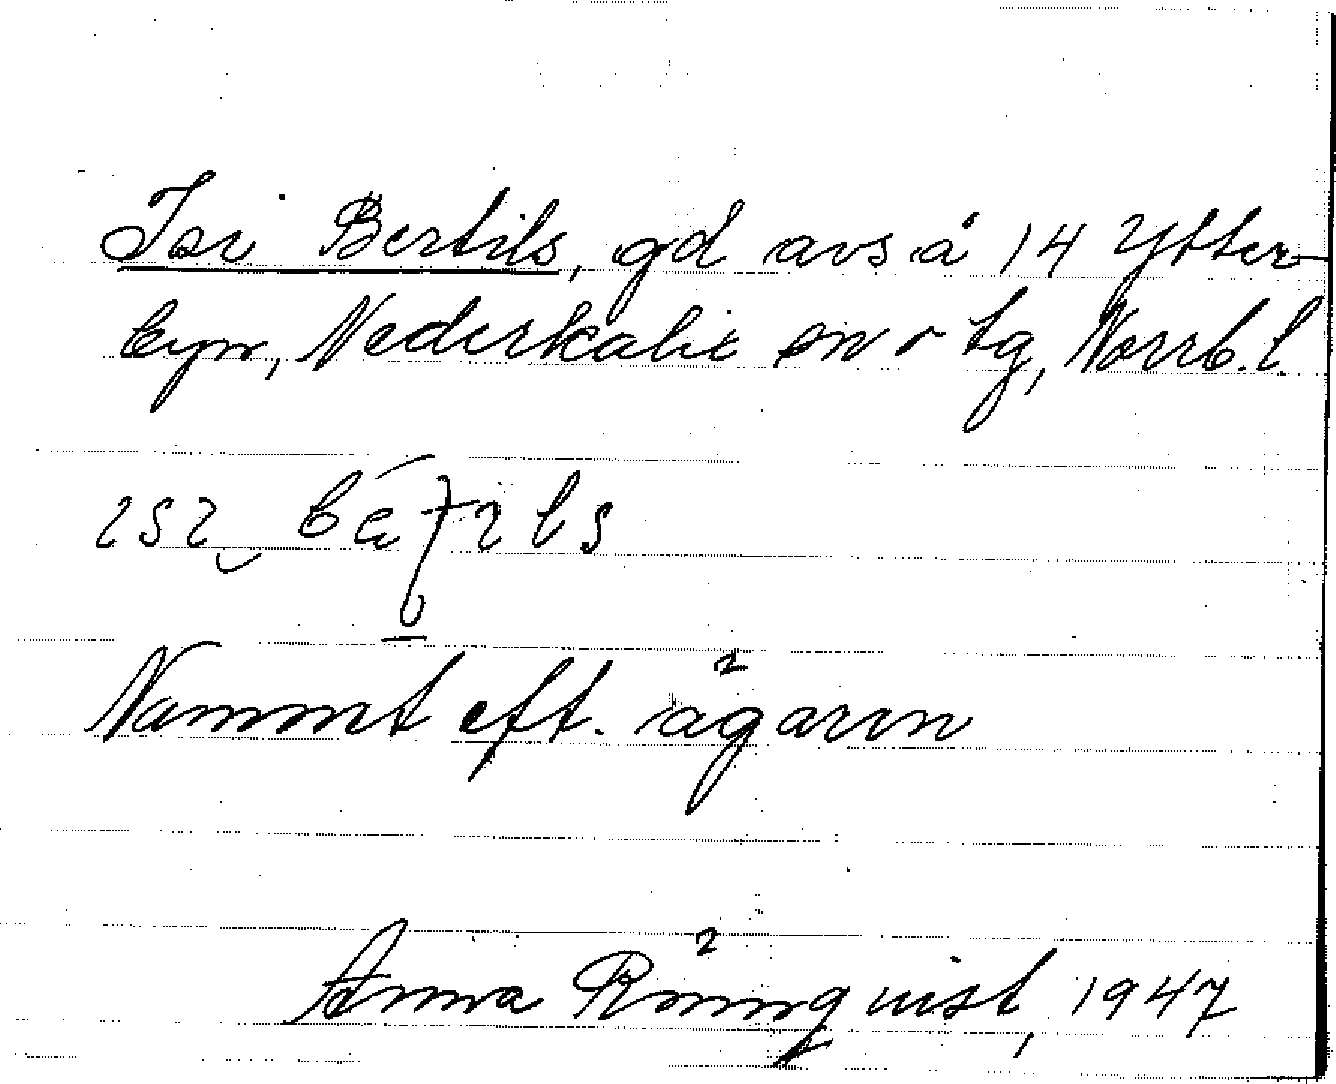 Isi Bertils, gd avs å 14 Ytter-
byn, Nederkalix sn o tg, Norrb. l.
Namnt eft. ägaren
Anna Rönnqvist, 1947